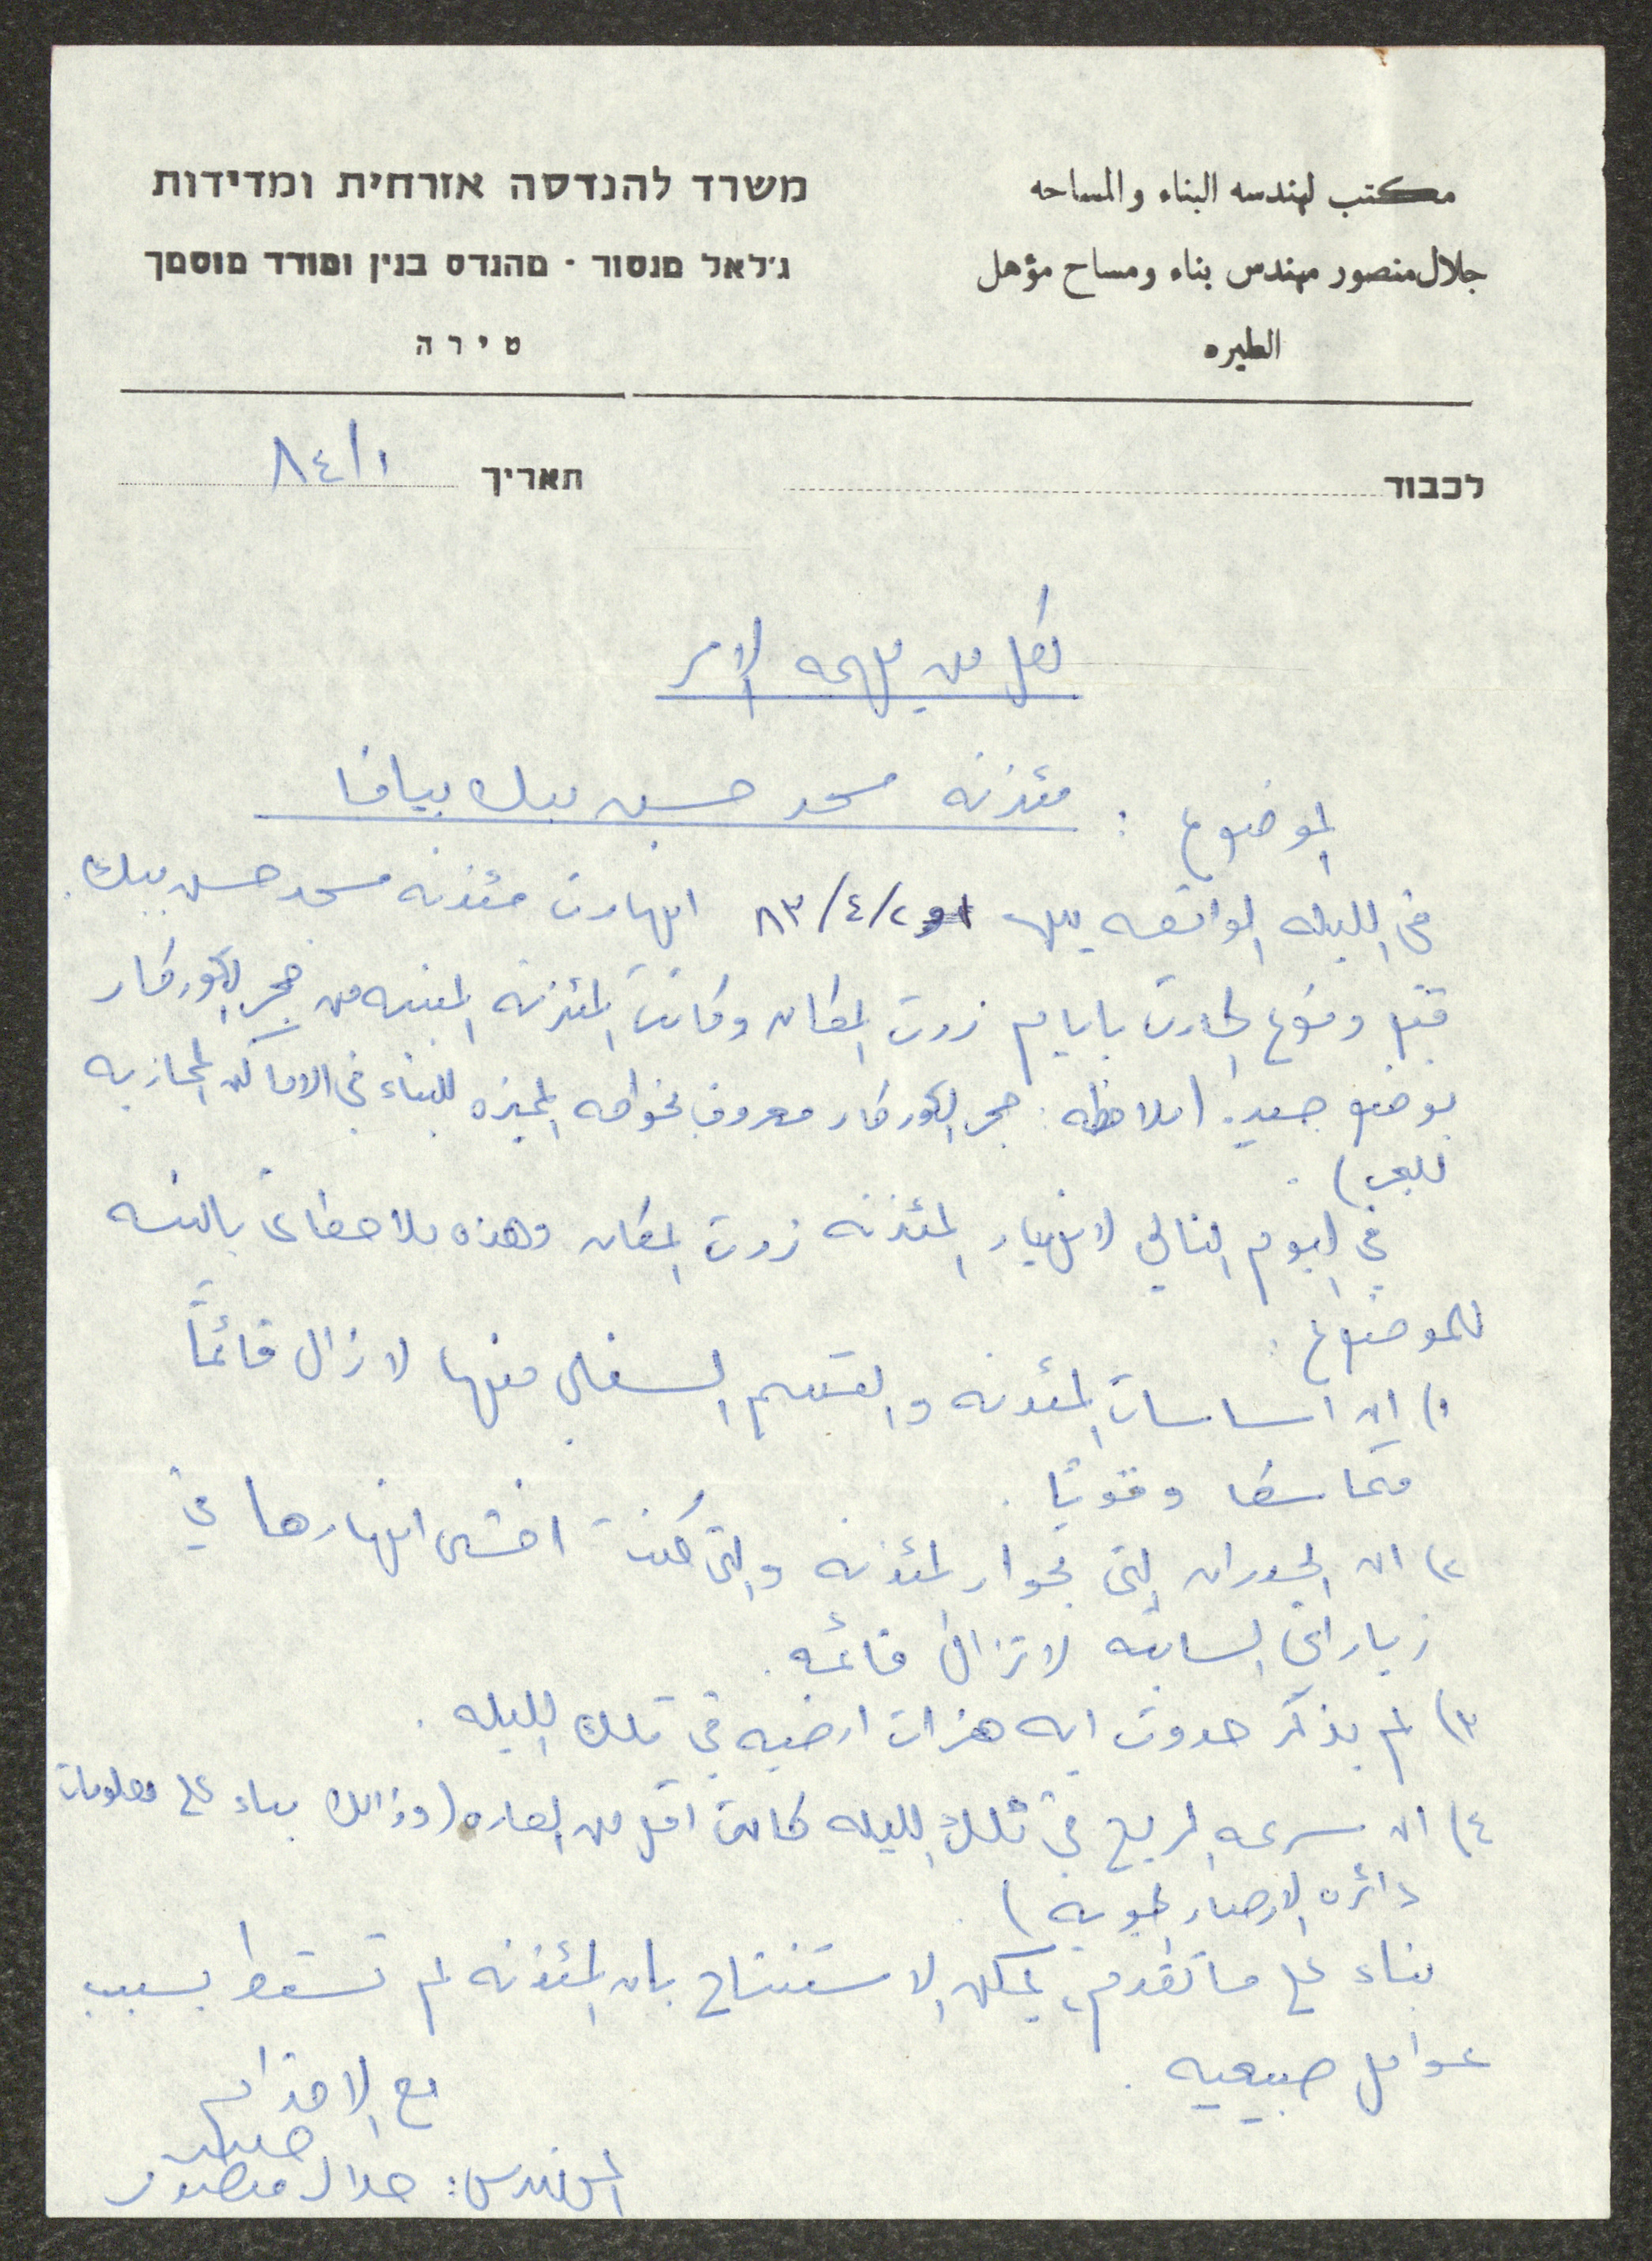 مكتب لهندسه البناء والمساحه
جلال منصور مهندس بناء ومساح مؤهل
الطيره
משרד להנדסה אזרחית ומדידות
ג׳לאל מנסור · מהנדס בנין ומודד מוסמך
טירה
לכבוד
תאריך ٨٤/١
لكل من يهمه الامر
الموضوع : مئذنة مسجد حسن بيك بيافا
في الليله الواقعه ٨٣/٤/٢ انهارت مئذنه مسجد حسن بيك.
قبل وقوع الحادث بايام زرت المكان وكانت المئذنه المبنيه من حجر الكوركار
بوضع جيد. (ملاحظه: حجر الكوركار معروف بخواصه المميزه للبناء في الاماكن المحاذيه
للبحر).
في اليوم التالي لانهيار المئذنه زرت المكان وهذه ملاحظاتي بالنسبه
للموضوع:
١) ان اساسات المئذنه والقسم السفلي منها لا زال قائماً
متماسكا وقويا.
٢) ان الجدران التي بجوار المئذنه والتي كنت اخشى انهيارها في
زياراتي السابقه لا تزال قائمه.
٣) لم يذكر حدوث ايه هزات ارضيه في تلك الليله.
٤) ان سرعه الريح في تلك الليله كانت اقل من العاده (وذالك بناء على معلومات
دائره الارصاد الجويه).
بناء على ما تقدم، يمكن الاستنتاج بان المئذنه لم تسقط بسبب
عوامل طبيعيه.
مع الاحترام
المهندس: جلال منصور